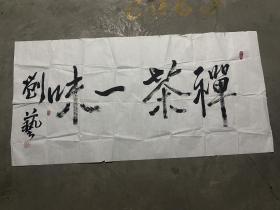 禪茶一味
劉藝